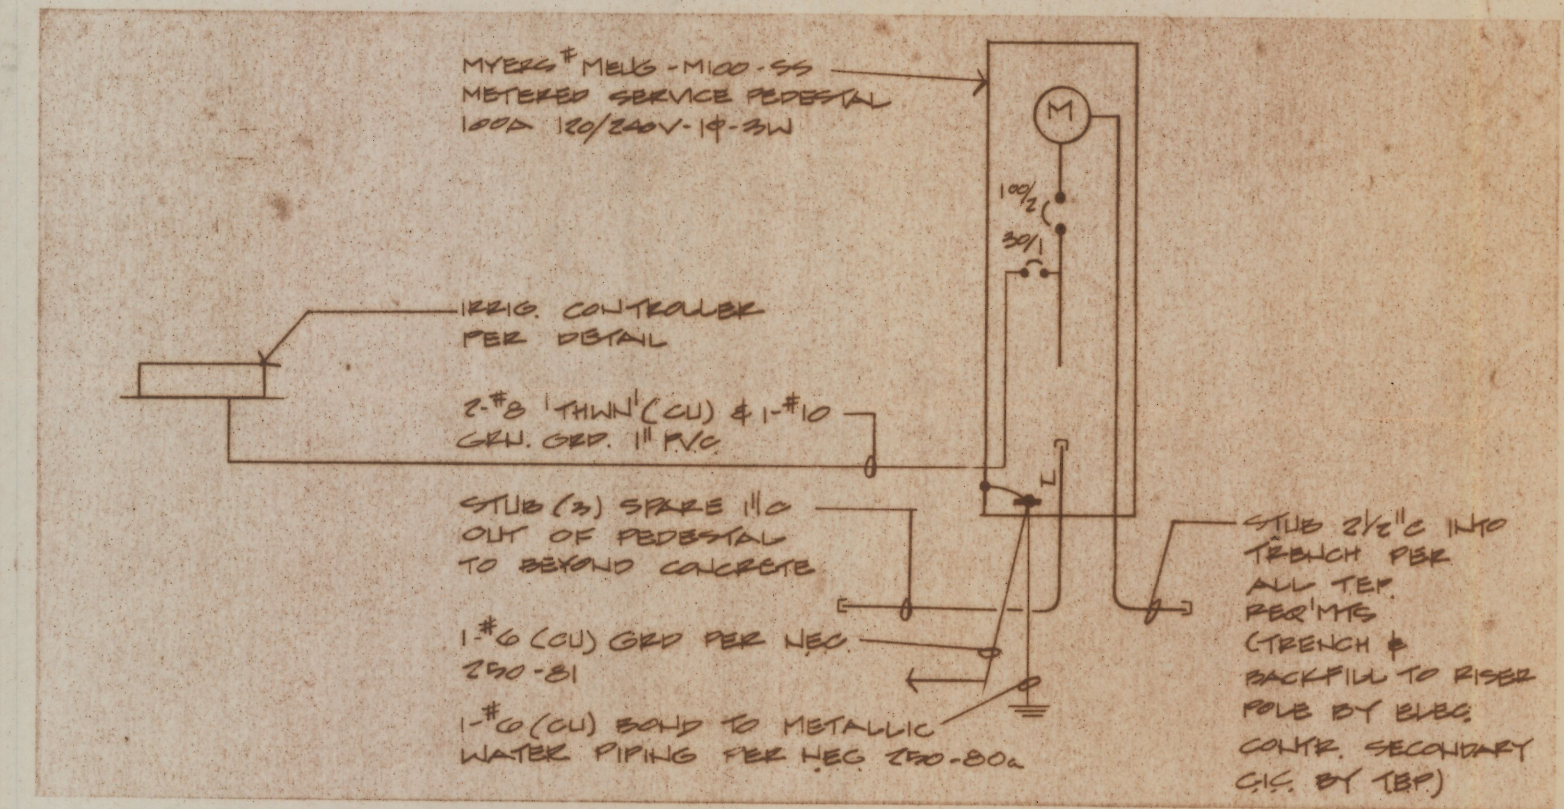 MYERS # MEUG-M100-SS
METERED SERVICE PEDESTAL
100A 120/240V-1φ-3W
M
100/2
30/1
IRRIG. CONTROLLER
PER DETAIL
2-#8 'THWN' (CU) & 1-#10
GRN. GRD. 1" PVC
STUB (3) SPARE 1"C
OUT OF PEDESTAL
TO BEYOND CONCRETE
1-#6 (CU) GRD PER NEC
250-81
1-#6 (CU) BOND TO METALLIC
WATER PIPING PER NEC 250-80a
STUB 2½"C INTO
TRENCH PER
ALL TEP.
REQ'MTS
(TRENCH &
BACKFILL TO RISER
POLE BY ELEC.
CONTR. SECONDARY
C.I.C. BY TEP.)